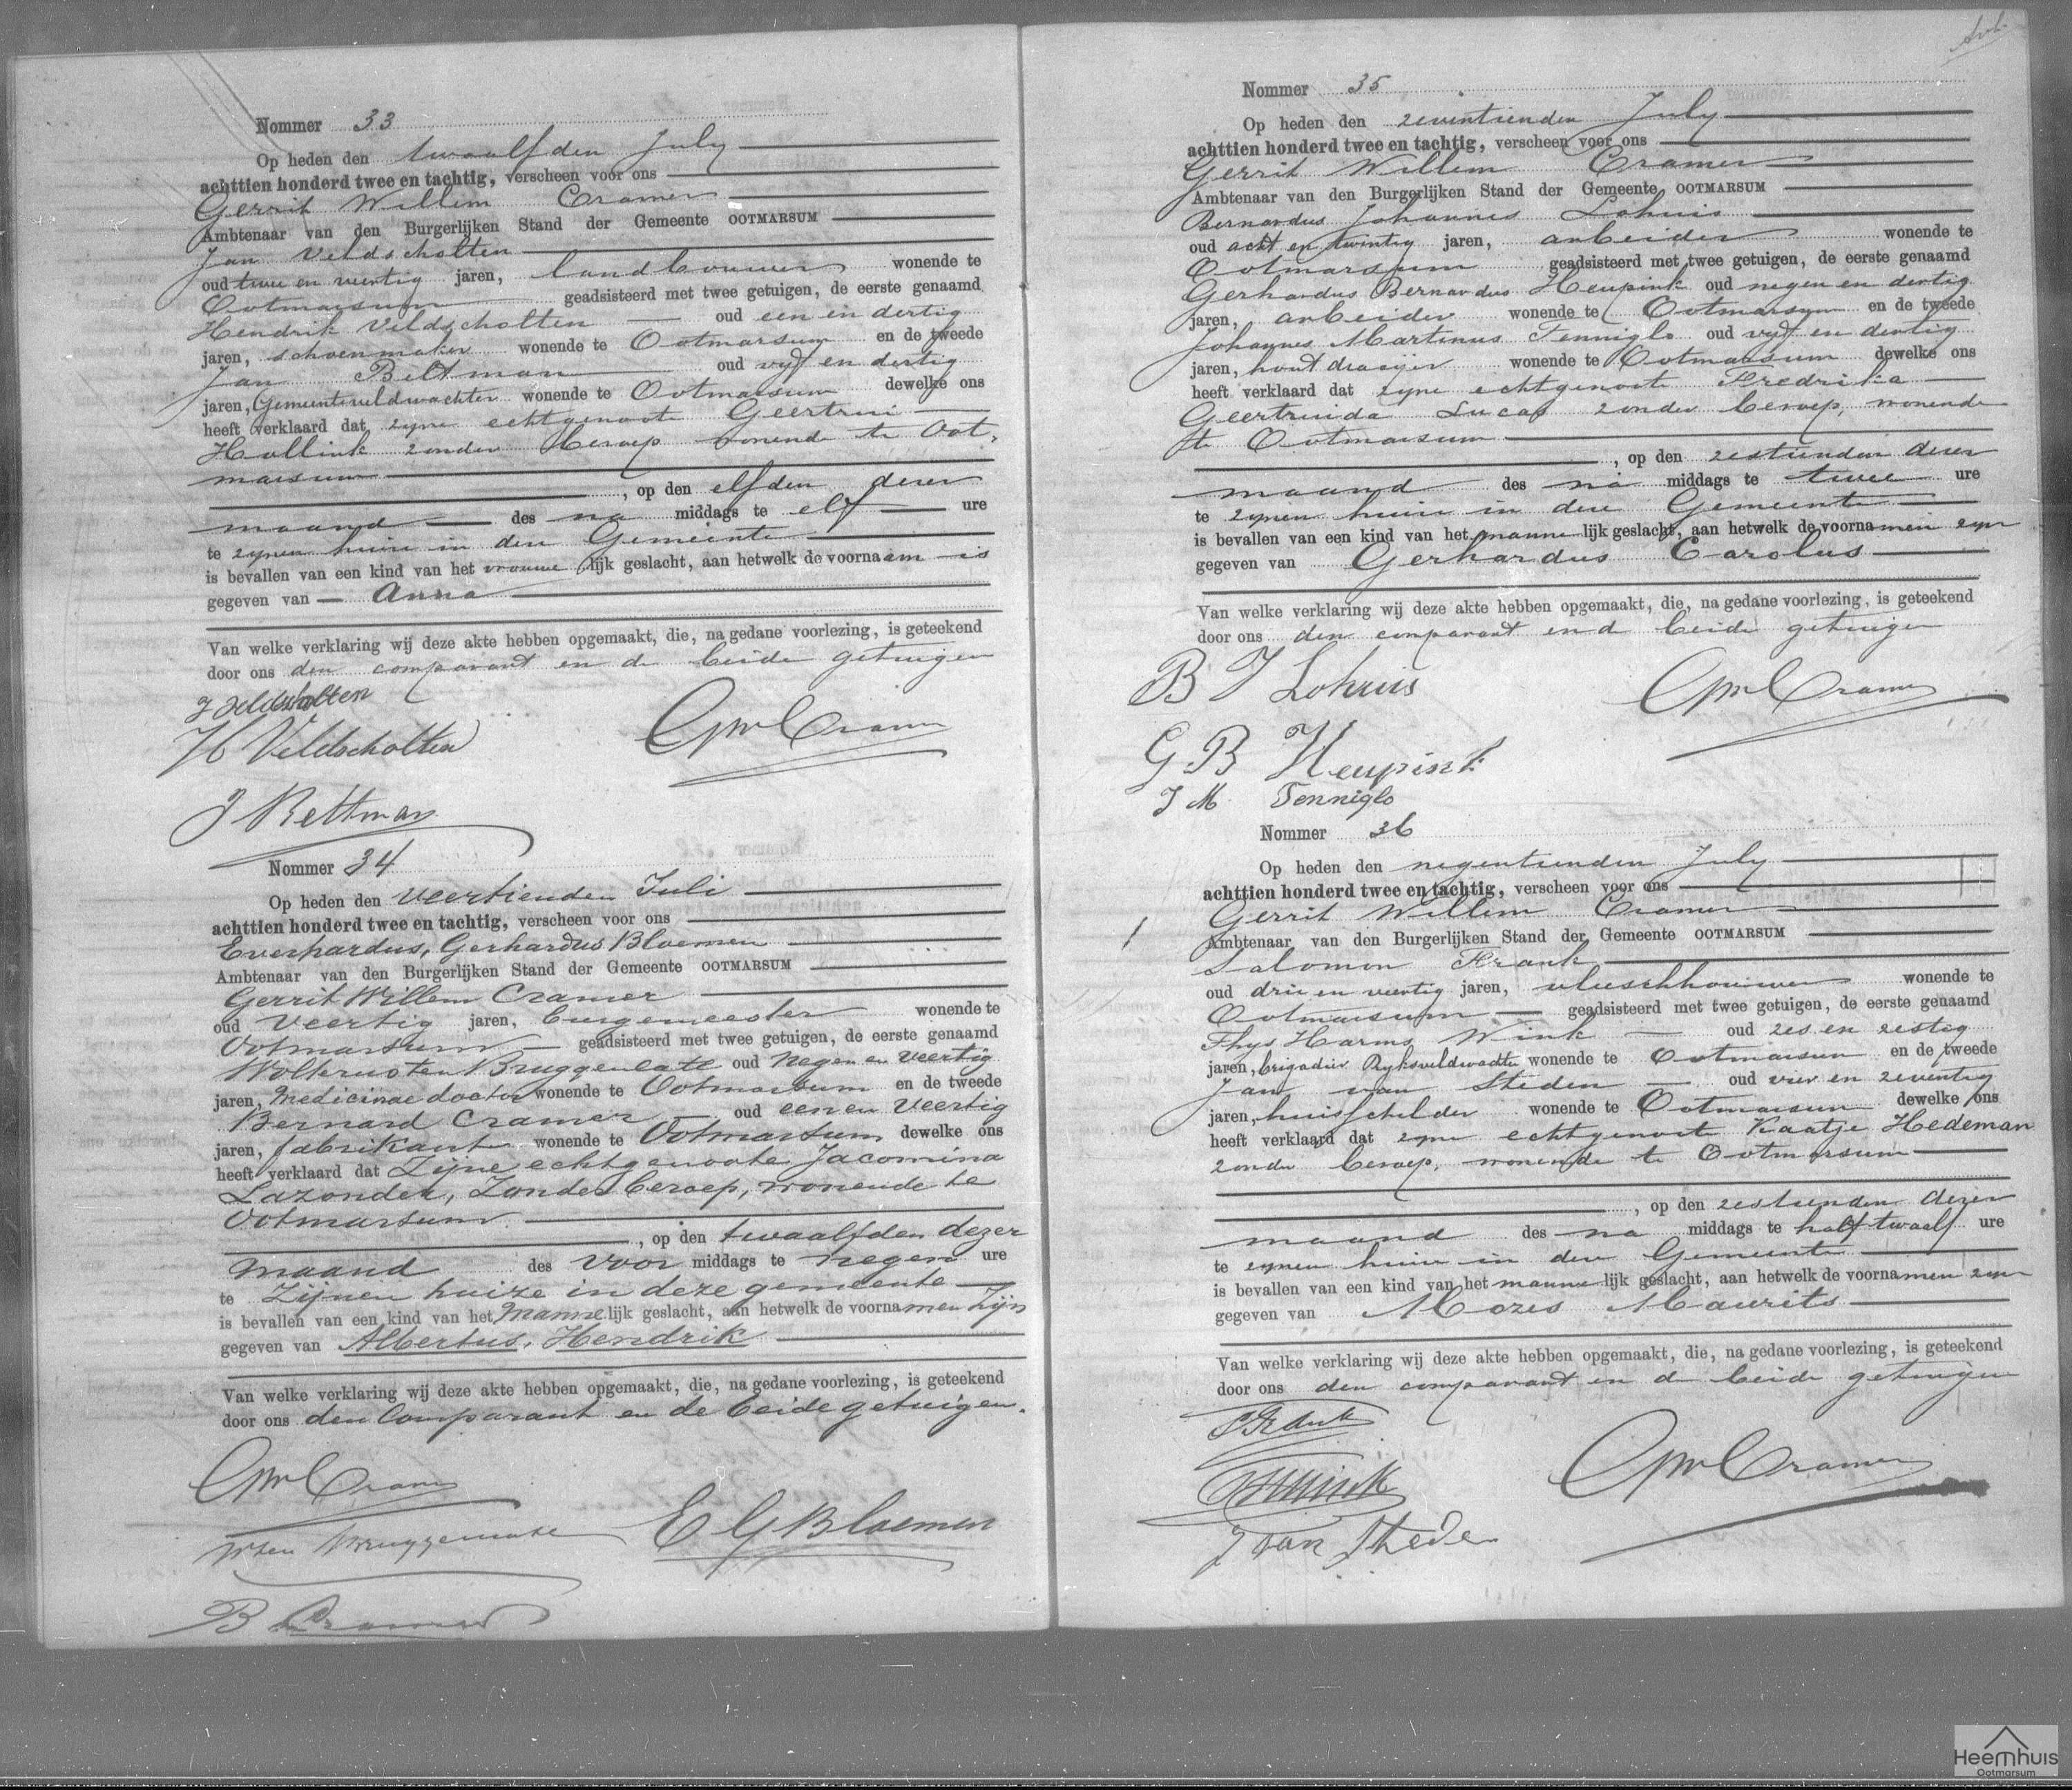 Nommer 33
Op heden den twaalfden July
achttien honderd twee en tachtig, verscheen voor ons
Gerrit Willem Cramer
Ambtenaar van den Burgerlijken Stand der Gemeente OOTMARSUM
Jan Veldscholten
oud twee en veertig jaren, landbouwer wonende te
Ootmarsum geadsisteerd met twee getuigen, de eerste genaamd
Hendrik Veldscholten oud een en dertig
jaren, schoenmaker wonende te Ootmarsum en de tweede
Jan Beltman oud vyf en dertig
jaren, Gemeenteveldwachter wonende te Ootmarsum dewelke ons
heeft verklaard dat zyne echtgenoote Geertrui
Hollink zonder beroep wonende te Oot-
marsum
, op den elfden dezer
maand des na middags te elf ure
te zynen huize in deze Gemeente
is bevallen van een kind van het vrouwelijk geslacht, aan hetwelk de voornaam is
gegeven van Anna
Van welke verklaring wij deze akte hebben opgemaakt, die, na gedane voorlezing, is geteekend
door ons den comparant en de beide getuigen
J Veldscholten
H Veldscholten
GW Cramer
J Beltman
Nommer 34
Op heden den Veertienden Juli
achttien honderd twee en tachtig, verscheen voor ons
Everhardus, Gerhardus Bloemen
Ambtenaar van den Burgerlijken Stand der Gemeente OOTMARSUM
Gerrit Willem Cramer
oud Veertig jaren, burgemeester wonende te
Ootmarsum geadsisteerd met twee getuigen, de eerste genaamd
Wolter ten Bruggencate oud Negen en Veertig
jaren, Medicinae doctor wonende te Ootmarsum en de tweede
Bernard Cramer oud een en Veertig
jaren, fabrikant wonende te Ootmarsum dewelke ons
heeft verklaard dat Zijne echtgenoote Jacomina
Lazonder, Zonder beroep, wonende te
Ootmarsum.
, op den twaalfden dezer
maand des voor middags te negen ure
te Zijnen huize in deze gemeente
is bevallen van een kind van het Mannelijk geslacht, aan hetwelk de voornamen Zijn
gegeven van Albertus, Hendrik
Van welke verklaring wij deze akte hebben opgemaakt, die, na gedane voorlezing, is geteekend
door ons den Comparant en de beide getuigen.
GW Cramer
W ten Bruggencate
E G Bloemen
B Cramer
Nommer 35
Op heden den zeventienden July
achttien honderd twee en tachtig, verscheen voor ons
Gerrit Willem Cramer
Ambtenaar van den Burgerlijken Stand der Gemeente OOTMARSUM
Bernardus Johannes Lohuis
oud acht en twintig jaren, arbeider wonende te
Ootmarsum geadsisteerd met twee getuigen, de eerste genaamd
Gerhardus Bernardus Heupink oud negen en dertig
jaren, arbeider wonende te Ootmarsum en de tweede
Johannes Martinus Tenniglo oud vyf en dertig
jaren, hout draaijer wonende te Ootmarsum dewelke ons
heeft verklaard dat zyne echtgenoote Fredrika
Geertruida Lucas zonder beroep, wonende
te Ootmarsum
, op den zestienden dezer
maand des na middags te twee ure
te zynen huize in deze Gemeente
is bevallen van een kind van het mannelijk geslacht, aan hetwelk de voornamen zyn
gegeven van Gerhardus Carolus
Van welke verklaring wij deze akte hebben opgemaakt, die, na gedane voorlezing, is geteekend
door ons den comparant en d beide getuigen
B J Lohuis
GW Cramer
G B Heupink
J M Tenniglo
Nommer 36
Op heden den negentienden July
achttien honderd twee en tachtig, verscheen voor ons
Gerrit Willem Cramer
Ambtenaar van den Burgerlijken Stand der Gemeente OOTMARSUM
Salomon Frank
oud drie en veertig jaren, vleeschhouwer wonende te
Ootmarsum geadsisteerd met twee getuigen, de eerste genaamd
Thys Harms Wink oud zes en zestig
jaren, brigadier Ryksveldwachter wonende te Ootmarsum en de tweede
Jan van Steden oud vier en zeventig
jaren, huisschilder wonende te Ootmarsum dewelke ons
heeft verklaard dat zyne echtgenoote Kaatje Hedeman
zonder beroep, wonende te Ootmarsum
, op den zestienden dezer
maand des na middags te half twaalf ure
te zynen huize in deze Gemeente
is bevallen van een kind van het mannelijk geslacht, aan hetwelk de voornamen zyn
gegeven van Mozes Maurits
Van welke verklaring wij deze akte hebben opgemaakt, die, na gedane voorlezing, is geteekend
door ons den comparant en de beide getuigen
S Frank
GW Cramer
THWink
J van Stheden
Heemhuis
Ootmarsum